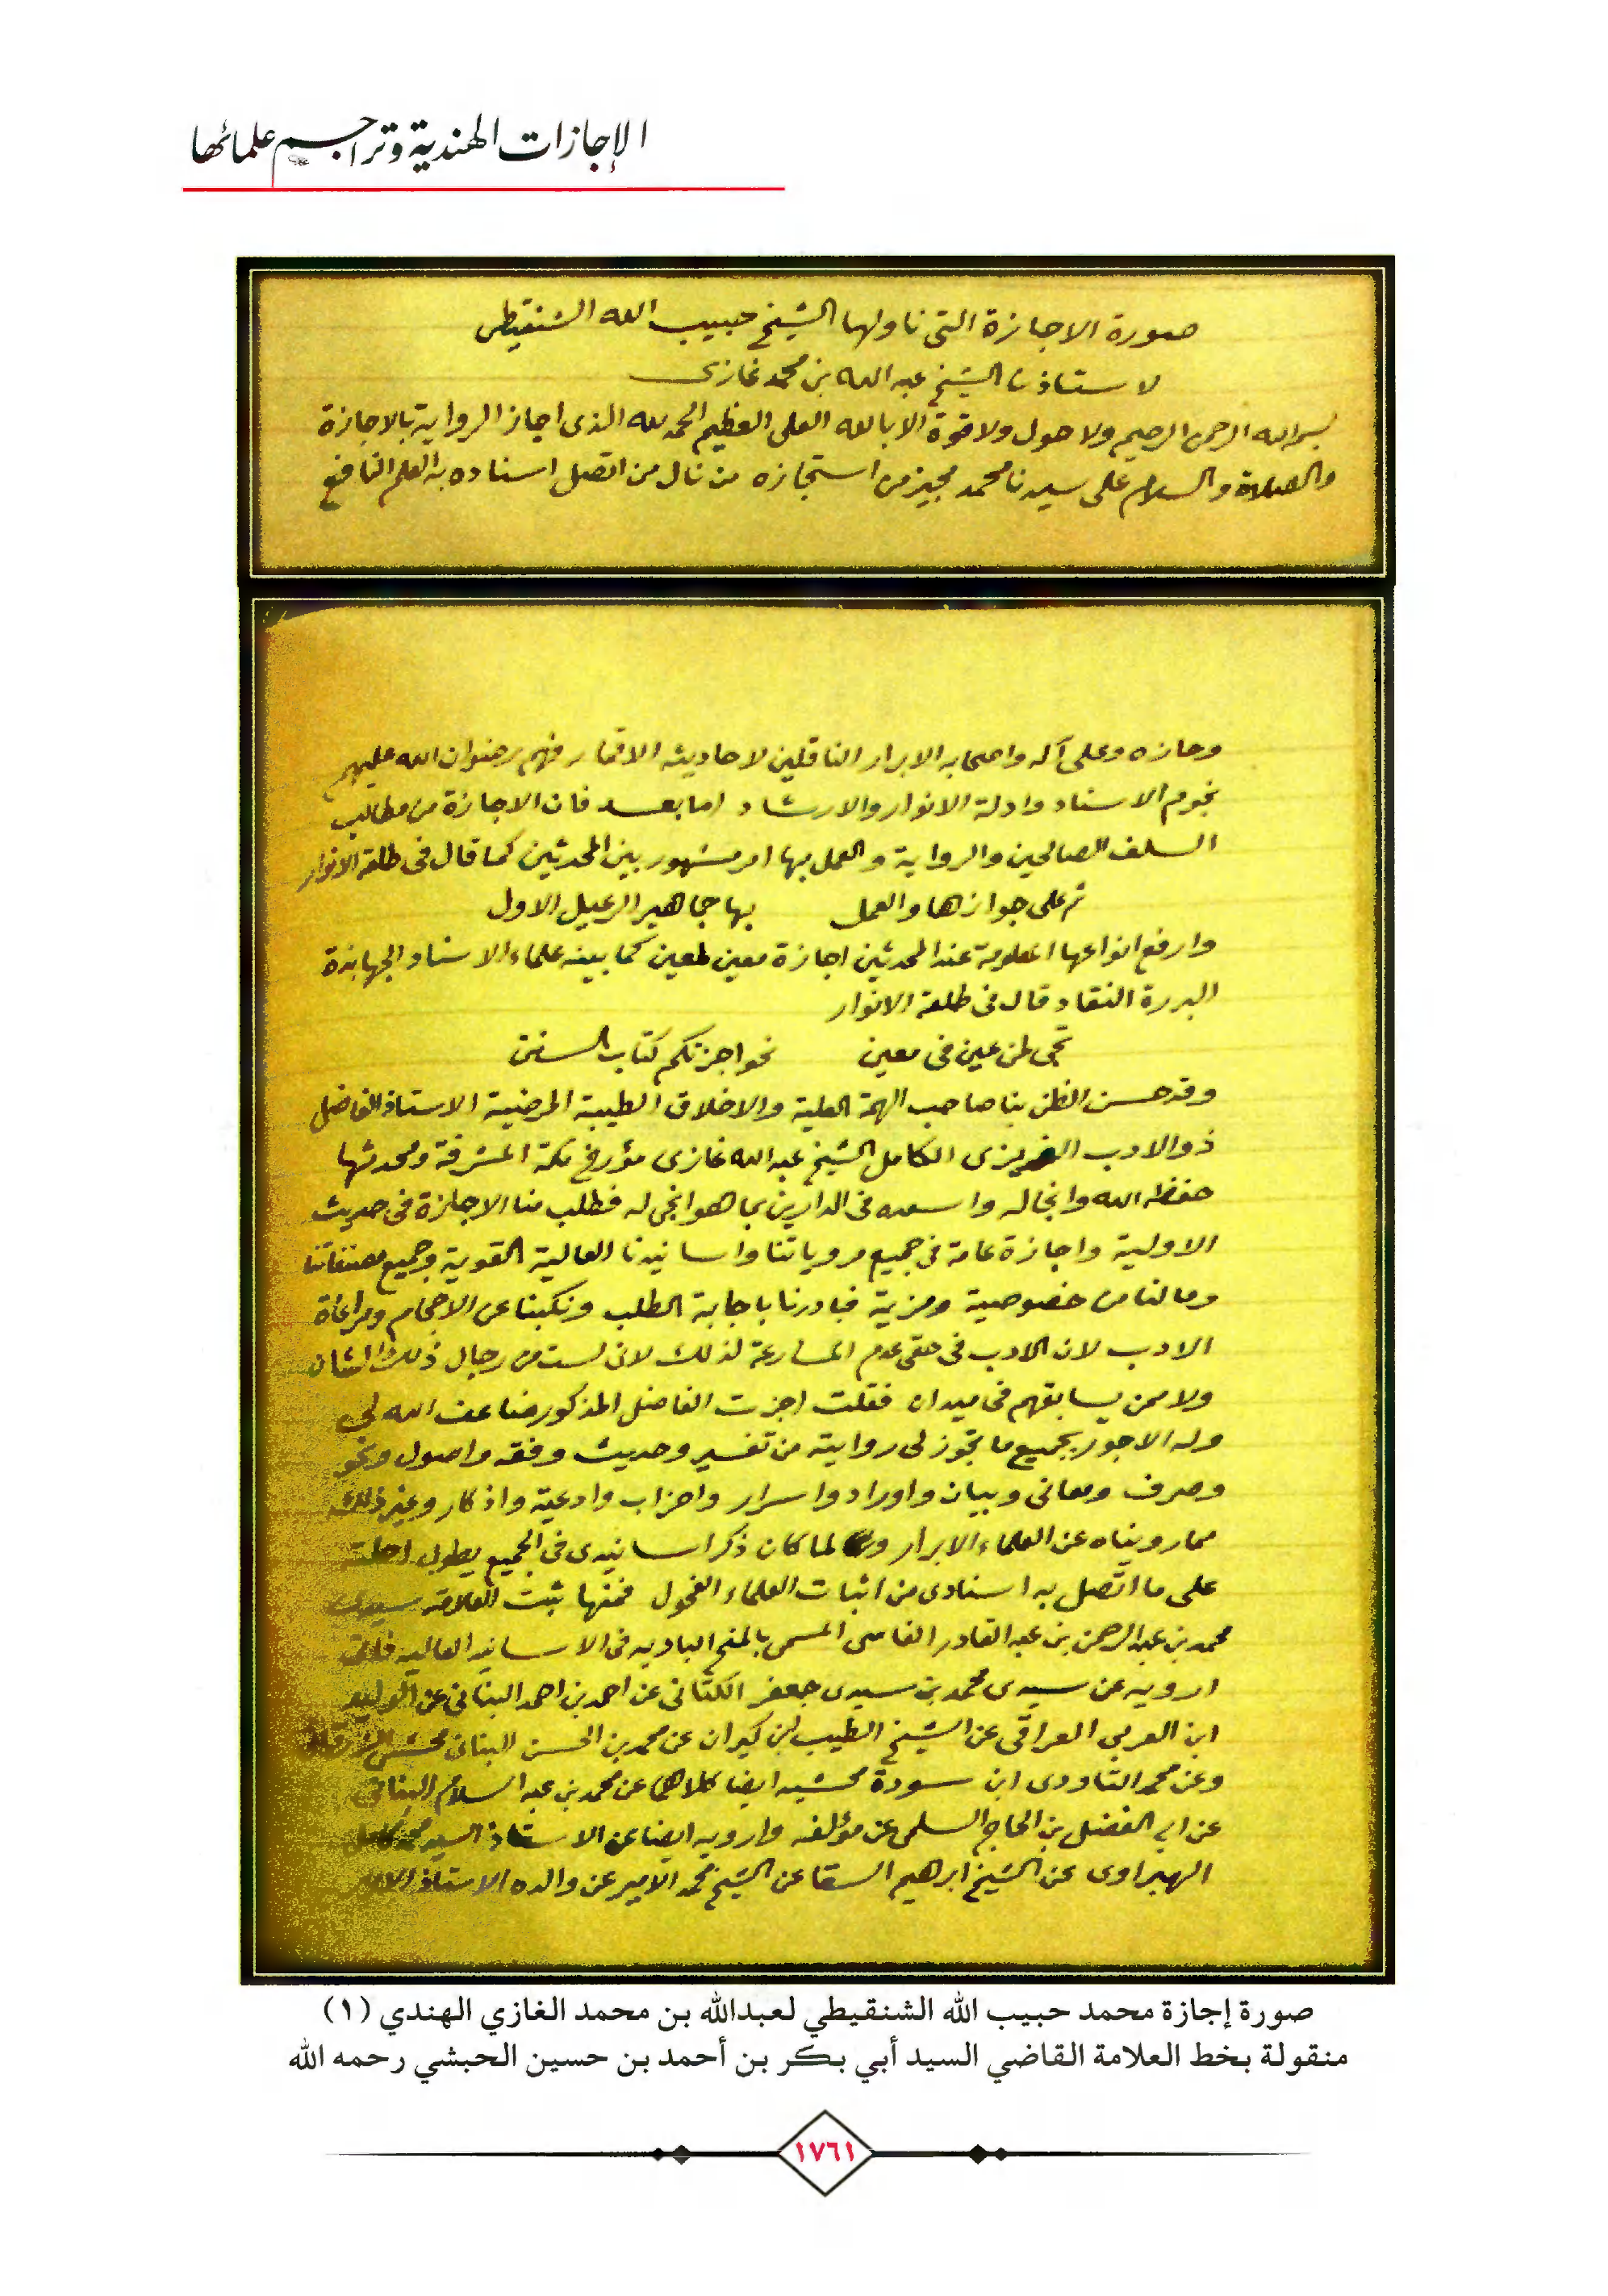 الإجازات الهندية وتراجم علمائها
صورة الاجازة التى ناولها الشيخ حبيب الله الشنقيطى
لاستاذنا الشيخ عبد الله بن محمد غازى
بسم الله الرحمن الرحيم ولا حول ولا قوة الا بالله العلى العظيم الحمد لله الذى اجاز الرواية بالاجازة
والصلاة والسلام على سيدنا محمد مجيز من استجازه من نال من اتصل اسناده به العلم النافع
وحازه وعلى آله واصحابه الابرار الناقلين لاحاديثه الاقمار فهم رضوان الله عليهم
نجوم الاسناد وادلة الانوار والارشاد اما بعد فان الاجازة من مطالب
السلف الصالحين والرواية والعمل بها امر مشهور بين المحدثين كما قال فى طلعة الانوار
ثم على جوازها والعمل بها جماهير الرعيل الاول
وارفع انواعها المعلومة عند المحدثين اجازة معين لمعين كما بينه علماء الاسناد الجهابذة
البررة النقاد قال فى طلعة الانوار
تجى لمن عين فى معين نحو اجزتكم كتاب السنن
وقد حسن الظن بنا صاحب الهمة العلية والاخلاق الطيبة المرضية الاستاذ الفاضل
ذو الادب الغريزى الكامل الشيخ عبد الله غازى مؤرخ مكة المشرفة ومحدثها
حفظه الله وانجاله واسعده فى الدارين بما هو انجى له فطلب منا الاجازة فى حديث
الاولية واجازة عامة فى جميع مروياتنا واسانيدنا العالية القوية وجميع مصنفاتنا
وما لنا من خصوصية ومزية فبادرنا باجابة الطلب ونكبنا عن الاحجام ومراعاة
الادب لان الادب فى حقى عدم المسارعة لذلك لانى لست من رجال ذلك الشان
ولا ممن يسابقهم فى ميدان فقلت اجزت الفاضل المذكور ضاعف الله لى
وله الاجور بجميع ما تجوز لى روايته من تفسير وحديث وفقه واصول ونحو
وصرف ومعانى وبيان واوراد واسرار واحزاب وادعية واذكار وغير ذلك
مما رويناه عن العلماء الابرار ولما كان ذكر اسانيدى فى الجميع يطول احلته
على ما اتصل به اسنادى من اثبات العلماء الفحول فمنها ثبت العلامة سيدى
محمد بن عبد الرحمن بن عبد القادر الفاسى المسمى بالمنح البادية فى الاسانيد العالية فانى
ارويه عن سيدى محمد بن سيدى جعفر الكتانى عن احمد بن احمد البنانى عن الوليد
ابن العربى العراقى عن الشيخ الطيب بن كيران عن محمد بن الحسن البنانى محشى
وعن محمد التاودى ابن سودة محشيه ايضا كلاهما عن محمد بن عبد السلام البنانى
عن ابى الفضل بن الحاج السلمى عن مؤلفه وارويه ايضا عن الاستاذ السيد محمد كامل
الهبراوى عن الشيخ ابرهيم السقا عن الشيخ محمد الامير عن والده الاستاذ
صورة إجازة محمد حبيب الله الشنقيطي لعبدالله بن محمد الغازي الهندي (١)
منقولة بخط العلامة القاضي السيد أبي بكر بن أحمد بن حسين الحبشي رحمه الله
١٧٦١